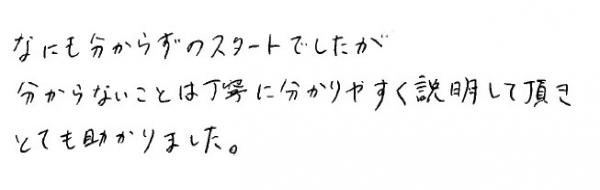 なにも分からずのスタートでしたが
分からないことは丁寧に分かりやすく説明して頂き
とても助かりました。